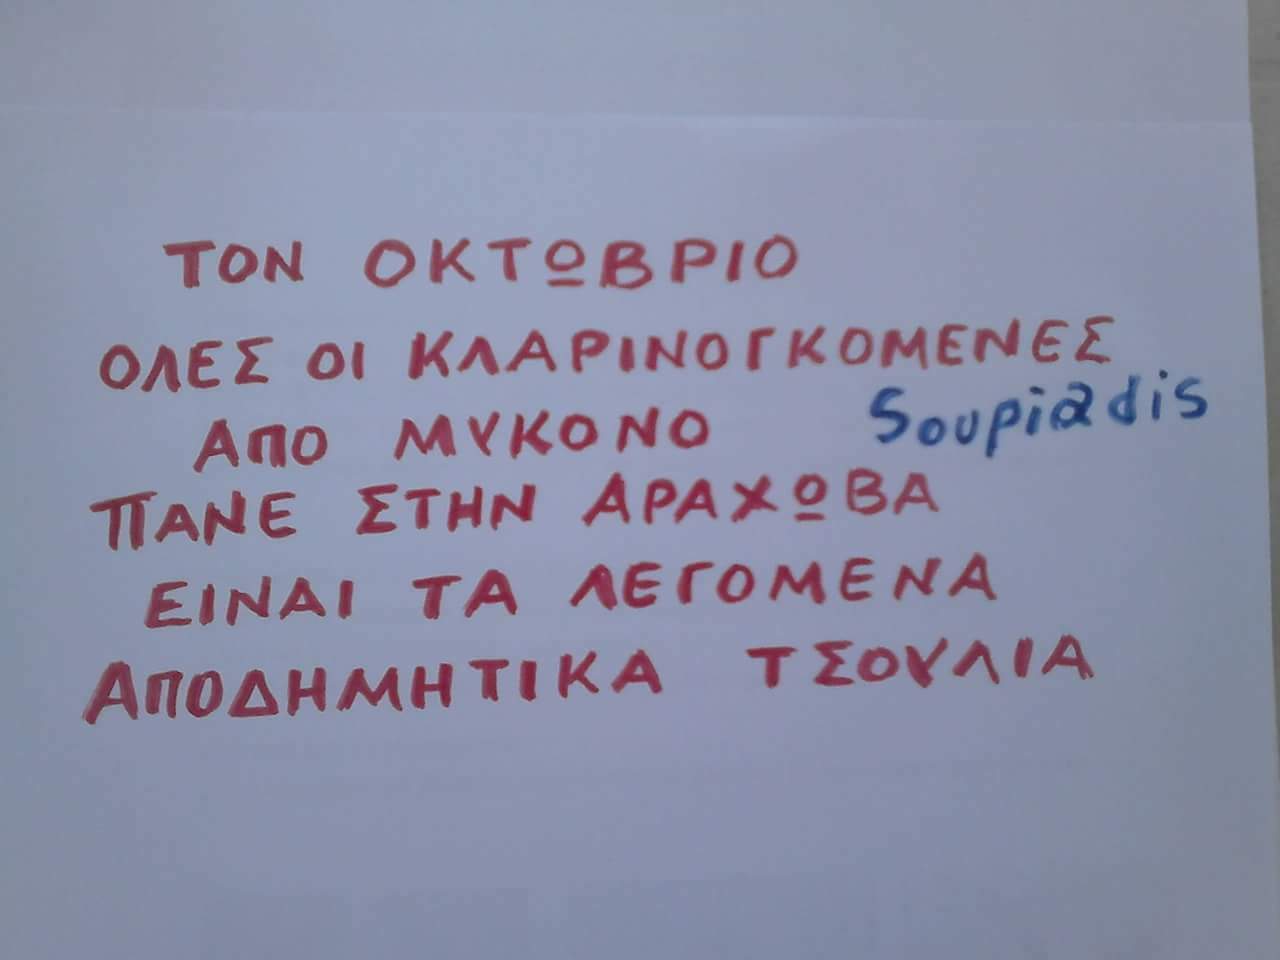 ΤΟΝ ΟΚΤΩΒΡΙΟ
ΟΛΕΣ ΟΙ ΚΛΑΡΙΝΟΓΚΟΜΕΝΕΣ
ΑΠΟ ΜΥΚΟΝΟ
Soupiadis
ΠΑΝΕ ΣΤΗΝ ΑΡΑΧΩΒΑ
ΕΙΝΑΙ ΤΑ ΛΕΓΟΜΕΝΑ
ΑΠΟΔΗΜΗΤΙΚΑ ΤΣΟΥΛΙΑ